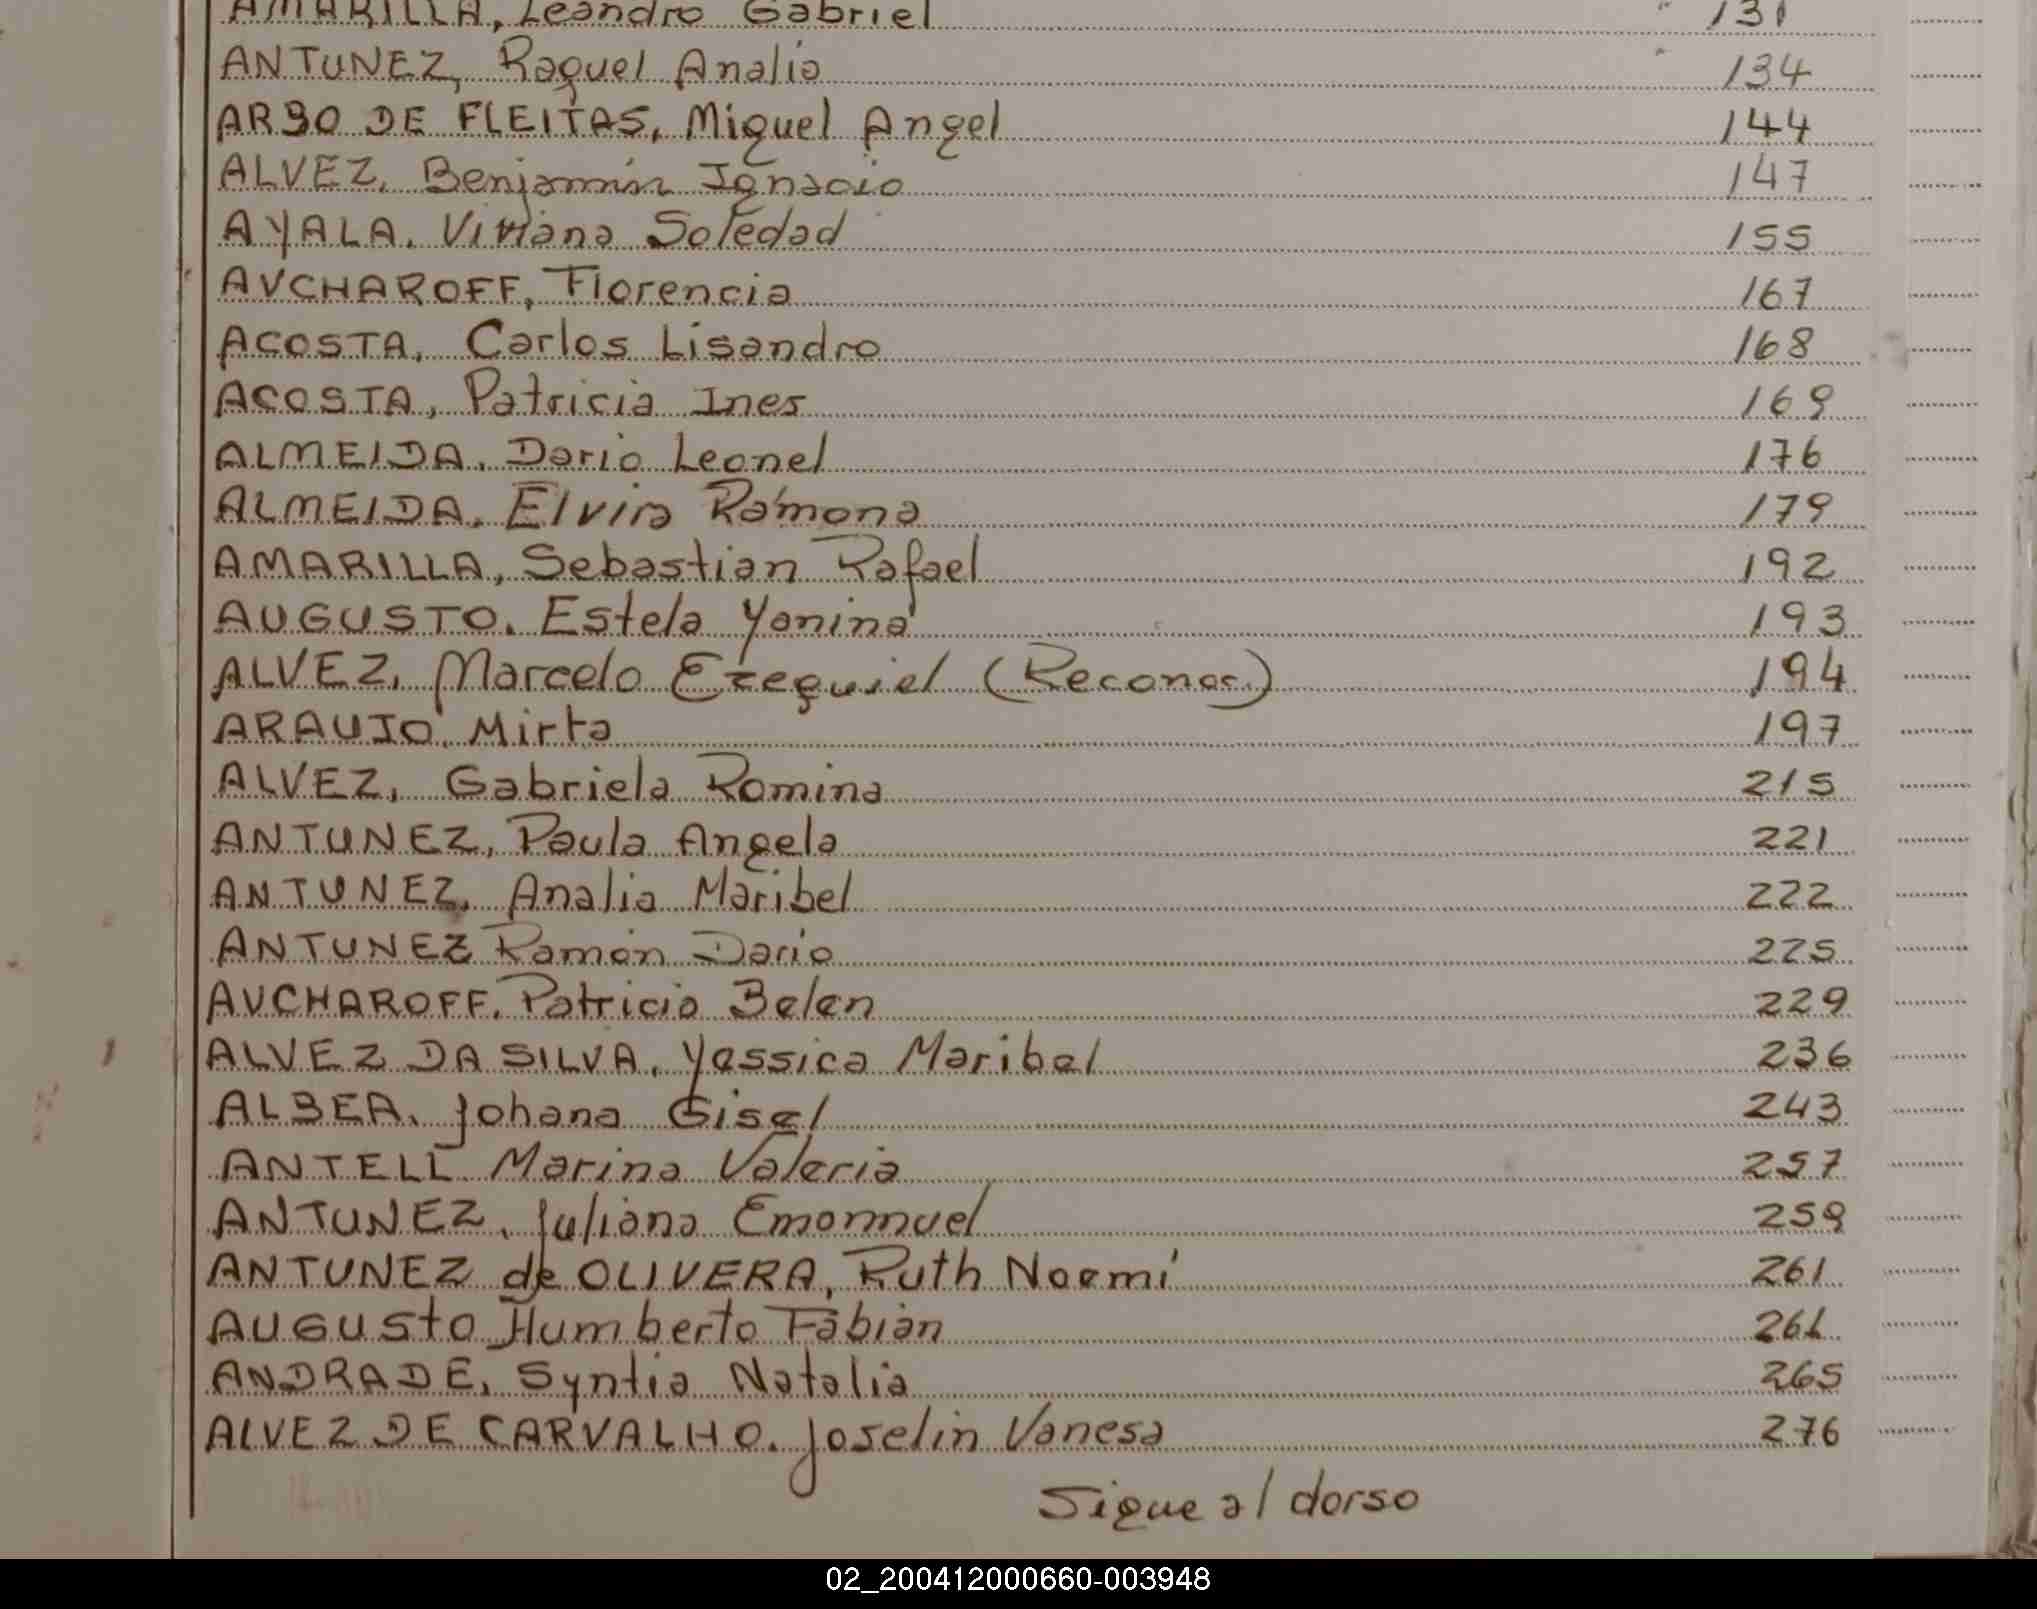 AMARILLA, Leandro Gabriel 131
ANTUNEZ, Raquel Analia 134
ARBO DE FLEITAS, Miguel Angel 144
ALVEZ, Benjamín Ignacio 147
AYALA, Viviana Soledad 155
AVCHAROFF, Florencia 167
ACOSTA, Carlos Lisandro 168
ACOSTA, Patricia Ines 169
ALMEIDA, Dario Leonel 176
ALMEIDA, Elvira Ramona 179
AMARILLA, Sebastian Rafael 192
AUGUSTO, Estela Yanina 193
ALVEZ, Marcelo Ezequiel (Reconoc.) 194
ARAUJO, Mirta 197
ALVEZ, Gabriela Romina 215
ANTUNEZ, Paula Angela 221
ANTUNEZ, Analia Maribel 222
ANTUNEZ Ramón Dario 225
AVCHAROFF, Patricia Belen 229
ALVEZ DA SILVA, Yessica Maribel 236
ALBEA, Johana Gisel 243
ANTELL Marina Valeria 257
ANTUNEZ, Juliana Emannuel 259
ANTUNEZ de OLIVERA, Ruth Noemí 261
AUGUSto Humberto Fabián 261
ANDRADE, Syntia Natalia 265
ALVEZ DE CARVALHO, Joselin Vanesa 276
Sigue al dorso
02_200412000660-003948